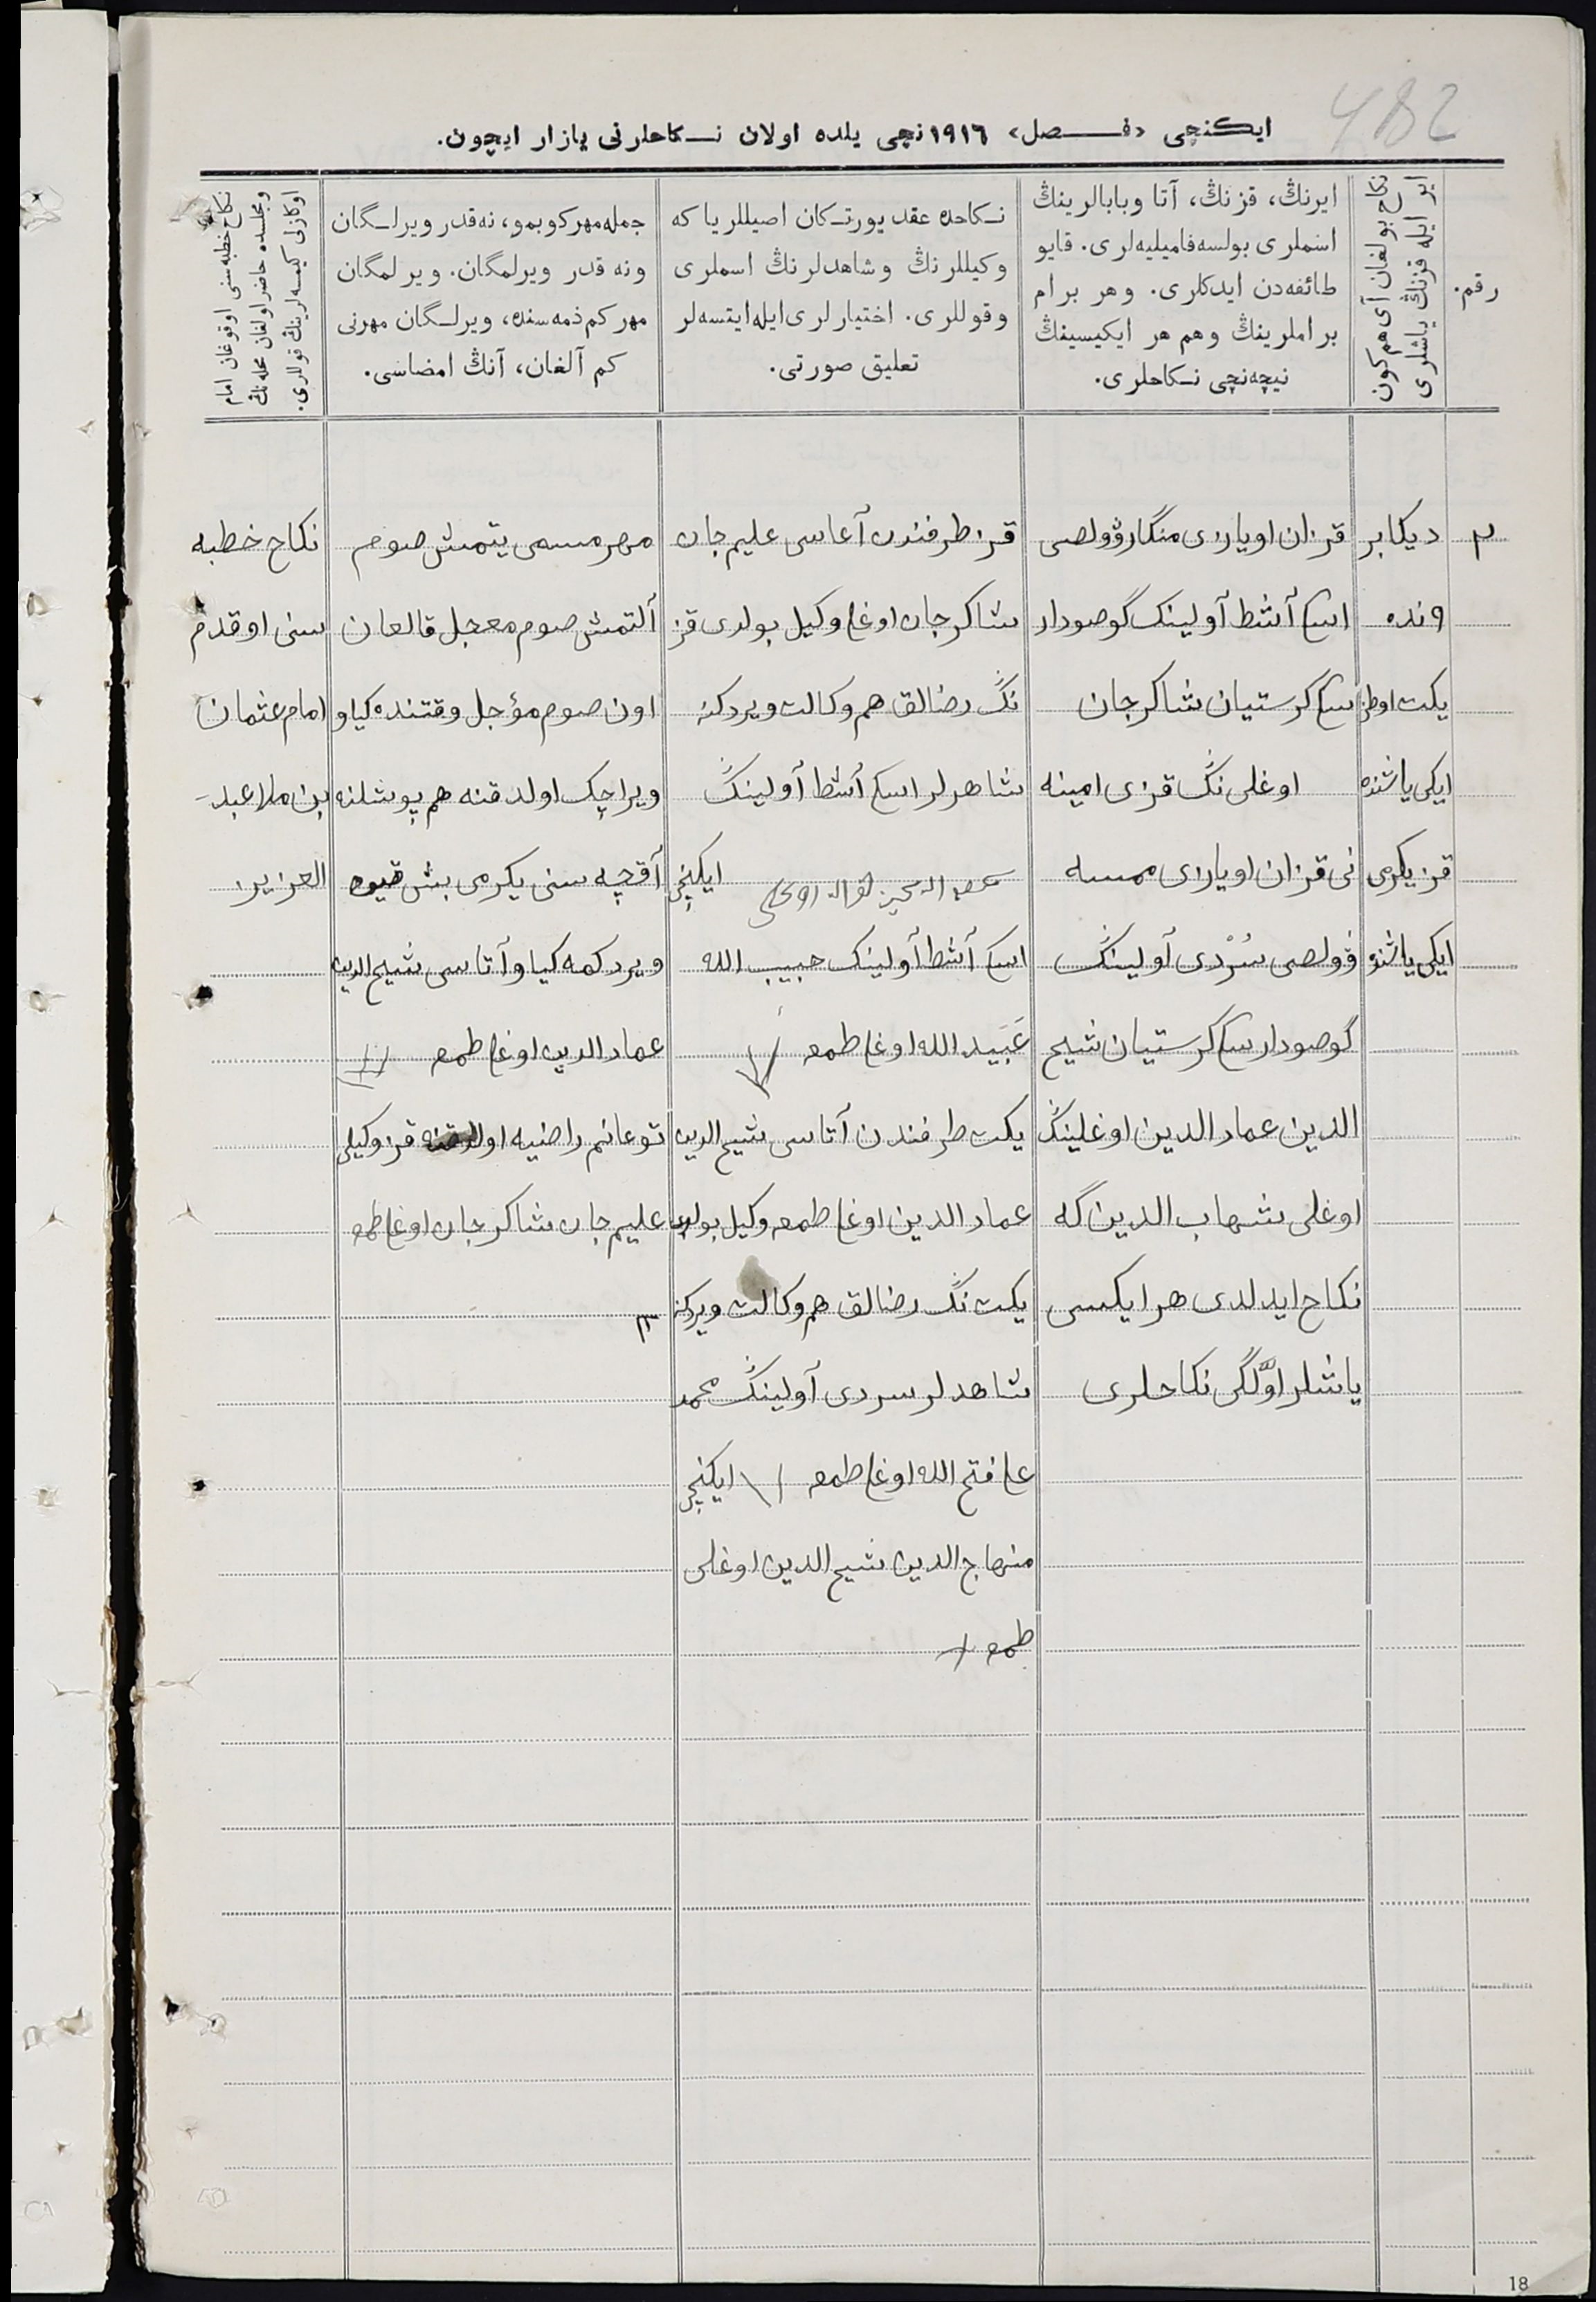 482
ایكنچی «فـصل» ١٩١٦ نچی یلده اولان نـكاحلرنی یازار ایچون.
رقم.
نكاح بولغان آی هم كون
ایر ایله قزنڭ یاشلری
ایرنڭ، قزنڭ، آتا وبابالرینڭ
اسملری بولسه فامیلیه‌لری. قایو
طائفه‌دن ایدكلری. وهر برام
براملرینڭ وهم هر ایكیسینڭ
نیچه‌نچی نـكاحلری.
نـكاحده عقد یورتـكان اصیللر یا كه
وكیللرنڭ وشاهدلرنڭ اسملری
وقوللری. اختیارلری ایله ایتسه‌لر
تعلیق صورتی.
جمله مهر كوبمو، نه‌قدر ویرلـگان
ونه قدر ویرلمگان. ویرلمگان
مهر كم ذمه سنده، ویرلـگان مهرنی
كم آلغان، آنڭ امضاسی.
نكاح خطبه سنی اوقوغان امام
ومجلسده حاضر اولغان محله‌نڭ
اوكازلی كیمسه‌لرینڭ قوللری.
٣
دیكابر
٩ نده
یكت اوطز
ایكی یاشنده
قز یكرمی
ایكی یاشنده
قزان اویازی منگار ڤولصی
اسكی آشط آولینڭ گوصودار
سكی كرستیان شاكرجان
اوغلی نڭ قزی امینه
نی قزان اویازی ممسه
ڤولصی سُرْدی آولینڭ
گوصودارسكی كرستیان شیخ
الدین عماد الدین اوغلینڭ
اوغلی شهاب الدین گه
نكاح ایدلدی هر ایكسی
یاشلر اوّلگی نكاحلری
قز طرفندن آغاسی علیم جان
شاكرجان اوغلی وكیل بولدی قز
نڭ رضالق هم وكالت ویردكنه
شاهدلر اسكی آشط آولینڭ
ایكنچی
اسكی آشط آولینڭ حبیب الله
عُبَید الله اوغلی طمعه
یكت طرفندن آتاسی شیخ الدین
عماد الدین اوغلی طمعه وكیل بولدی
یكت نڭ رضالق هم وكالت ویردكنه
شاهدلر سردی آولینڭ محمد
علی فتح الله اوغلی طمعه ایكنچی
منهاج الدین شیخ الدین اوغلی
طمعه
مهر مسمی یتمش صوم
آلتمش صوم معجل قالغان
اون صوم مؤجل وقتنده كیاو
ویراچك اولدقنه هم بوشلنه
آقچه سنی یكرمی بش قیوم
ویردكمه كیاو آتاسی شیخ الدین
عماد الدین اوغلی طمعه
توغانم راضیه اولدقنه قز وكیلی
علیم جان شاكرجان اوغلی طمعه
٣
نكاح خطبه
سنی اوقدم
امام عثمان
بن ملا عبد
العزیز
18